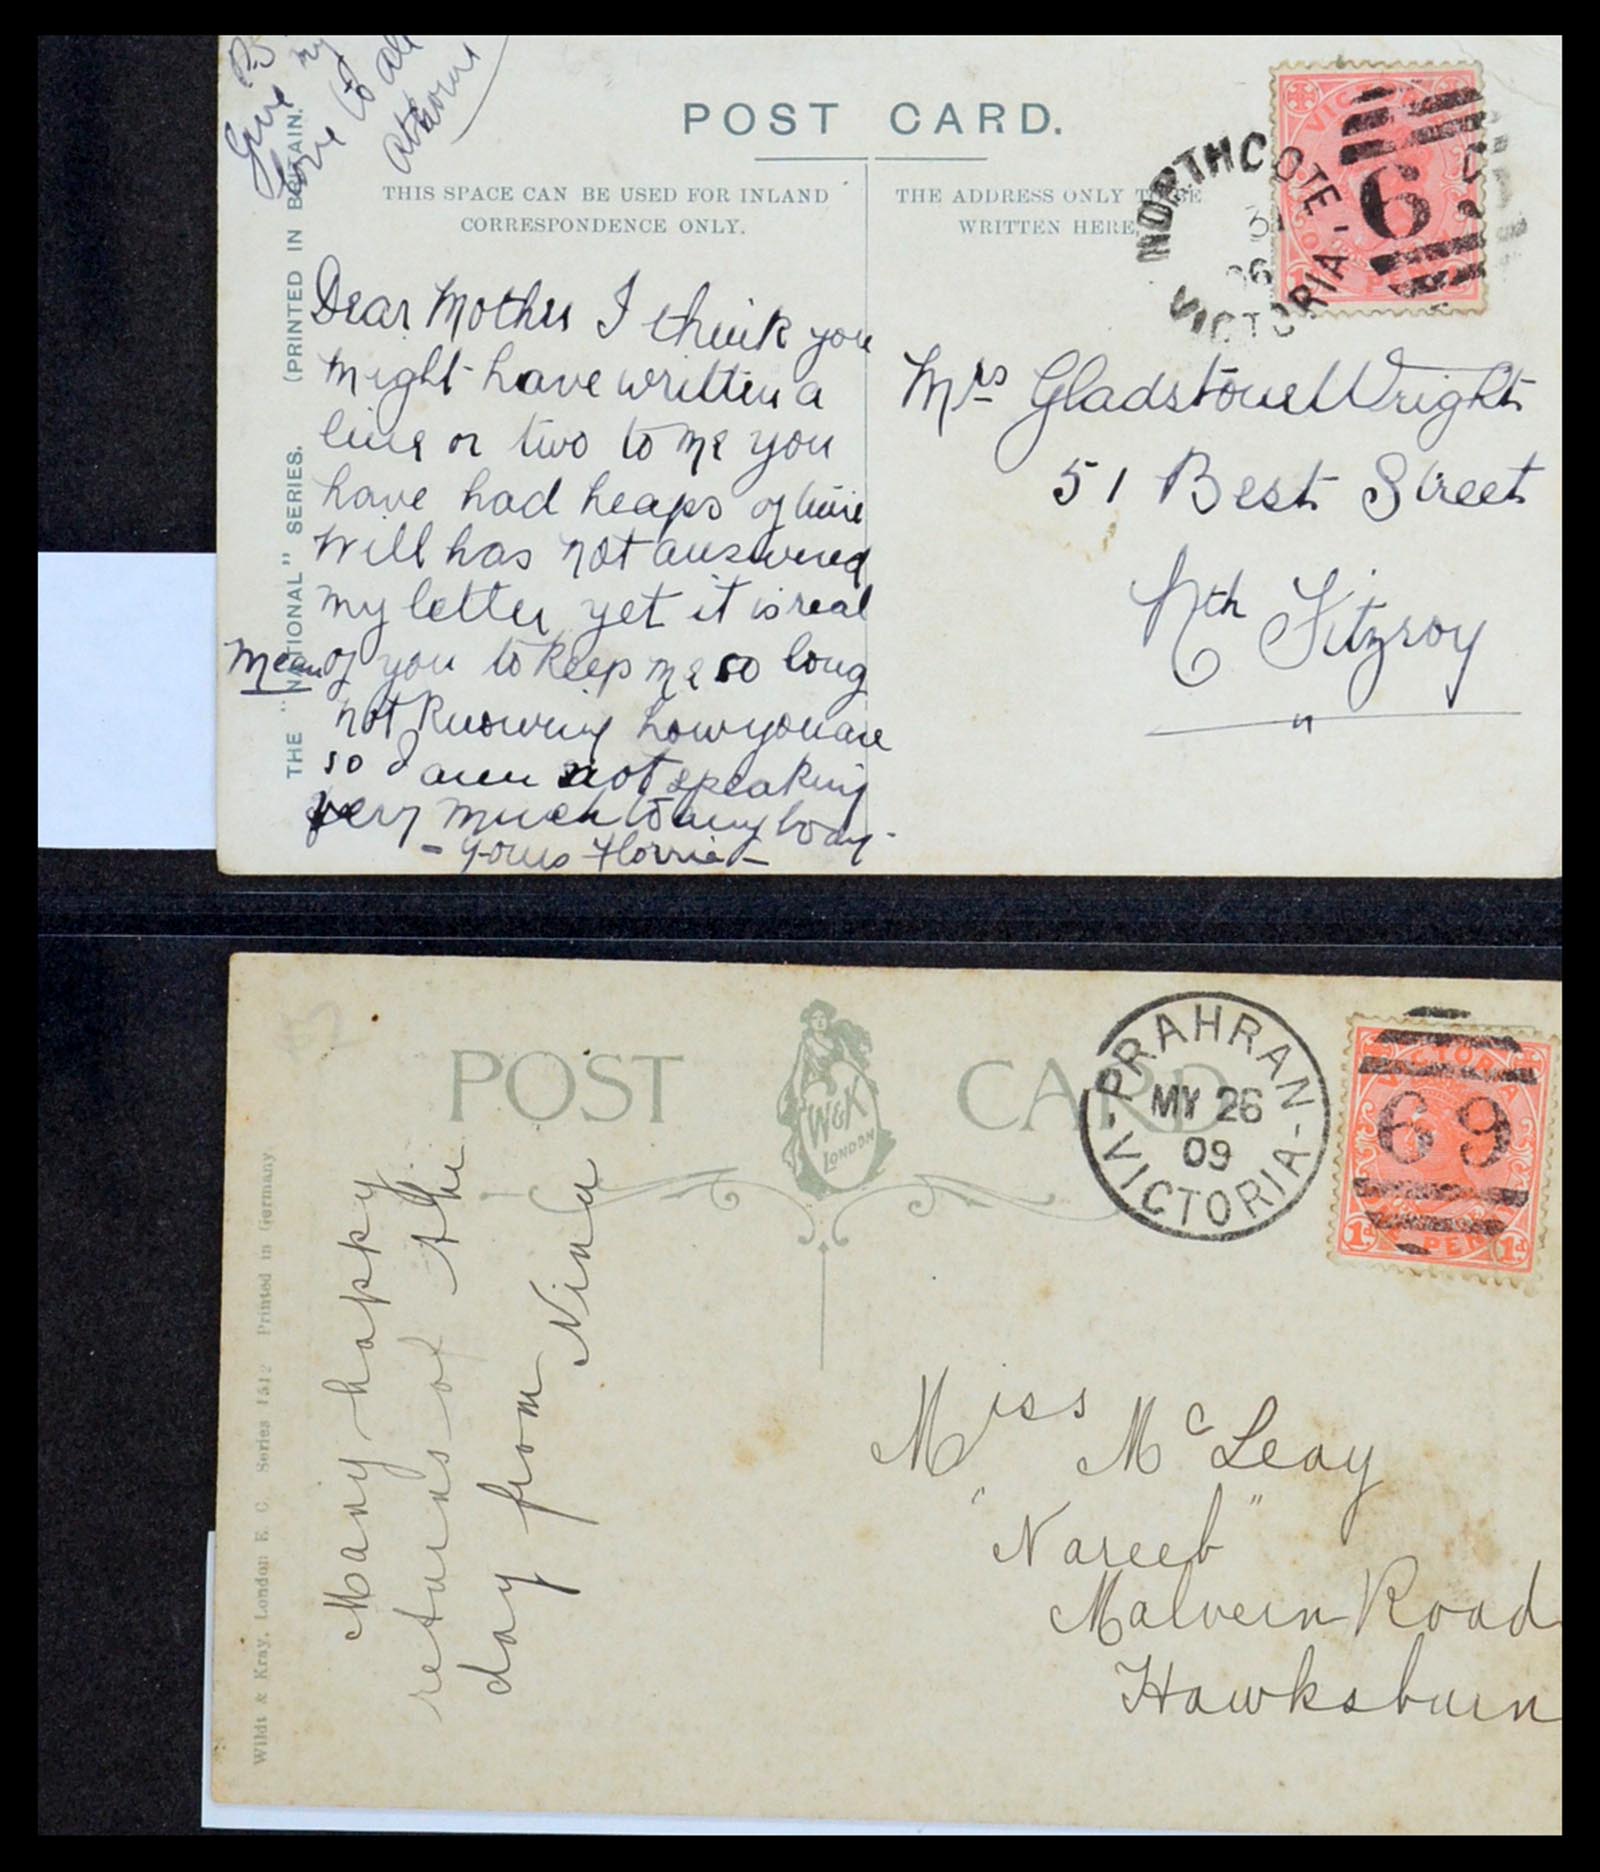 P.S.
Give my
love to all
at home
POST CARD.
THIS SPACE CAN BE USED FOR INLAND
CORRESPONDENCE ONLY.
THE ADDRESS ONLY TO BE
WRITTEN HERE.
THE "NATIONAL" SERIES. (PRINTED IN BRITAIN.
NORTHCOTE
VICTORIA
Dear Mother I think you
might have written a
line or two to me you
have had heaps of time
Will has not answered
my letter yet it is real
mean of you to keep me so long
not knowing how you are
so I am not speaking
very much to anybody
- Yours Florrie -
Mrs Gladstone Wright
51 Best Street
Nth Fitzroy
POST CARD
W&K
LONDON
PRAHRAN
MY 26
09
VICTORIA
VICTORIA
69
1d
1d
Wildt & Kray, London E. C. Series 1512 Printed in Germany
Many happy
returns of the
day from Nina
Miss McLeay
"Nareeb"
Malvern Road
Hawksburn